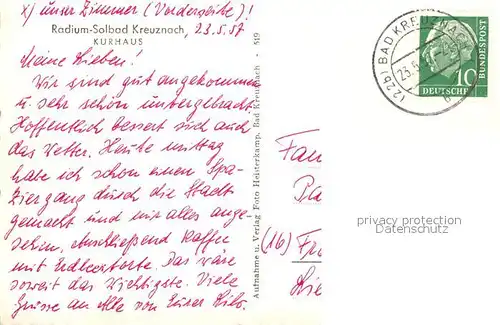 x) unser Zimmer (Vorderseite!)
Radium-Solbad Kreuznach, 23.5.57
KURHAUS
Meine Lieben!
Wir sind gut angekommen
u. sehr schön untergebracht.
Hoffentlich bessert sich auch
das Wetter. Heute mittag
habe ich schon einen Spa-
ziergang durch die Stadt
gemacht und mir alles ange-
sehen, abschließend Kaffee
mit Erdbeertorte. Das wäre
soweit das Wichtigste. Viele
Grüsse an Alle von Eurer
Aufnahme u. Verlag Foto Heisterkamp, Bad Kreuznach - 519
(22b) BAD KREUZNACH
23.5.
DEUTSCHE BUNDESPOST
10
Fam
(16) Fra
privacy protection
Datenschutz